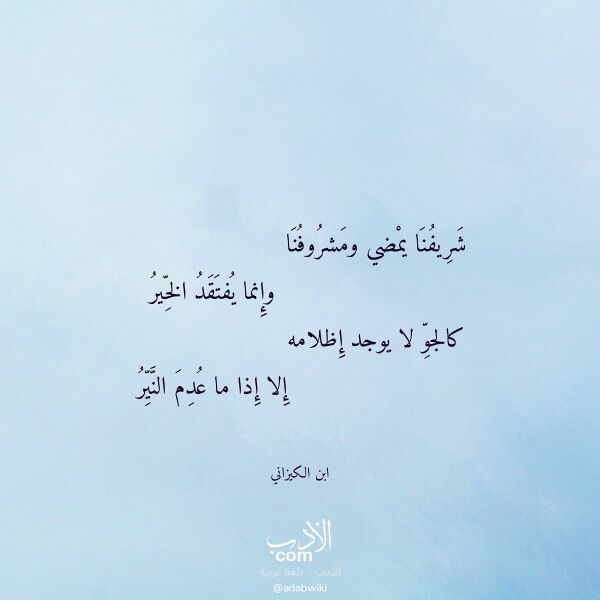 شَرِيفُنَا يمْضي ومَشرُوفُنَا
وإِنما يُفتَقَدُ الخَيِّرُ
كالجوِّ لا يوجد إِظلامه
إِلا إِذا ما عُدِمَ النَّيِّرُ
ابن الكيزاني
الأدب
com
الأدب .. بلغة عربية
@adabwiki